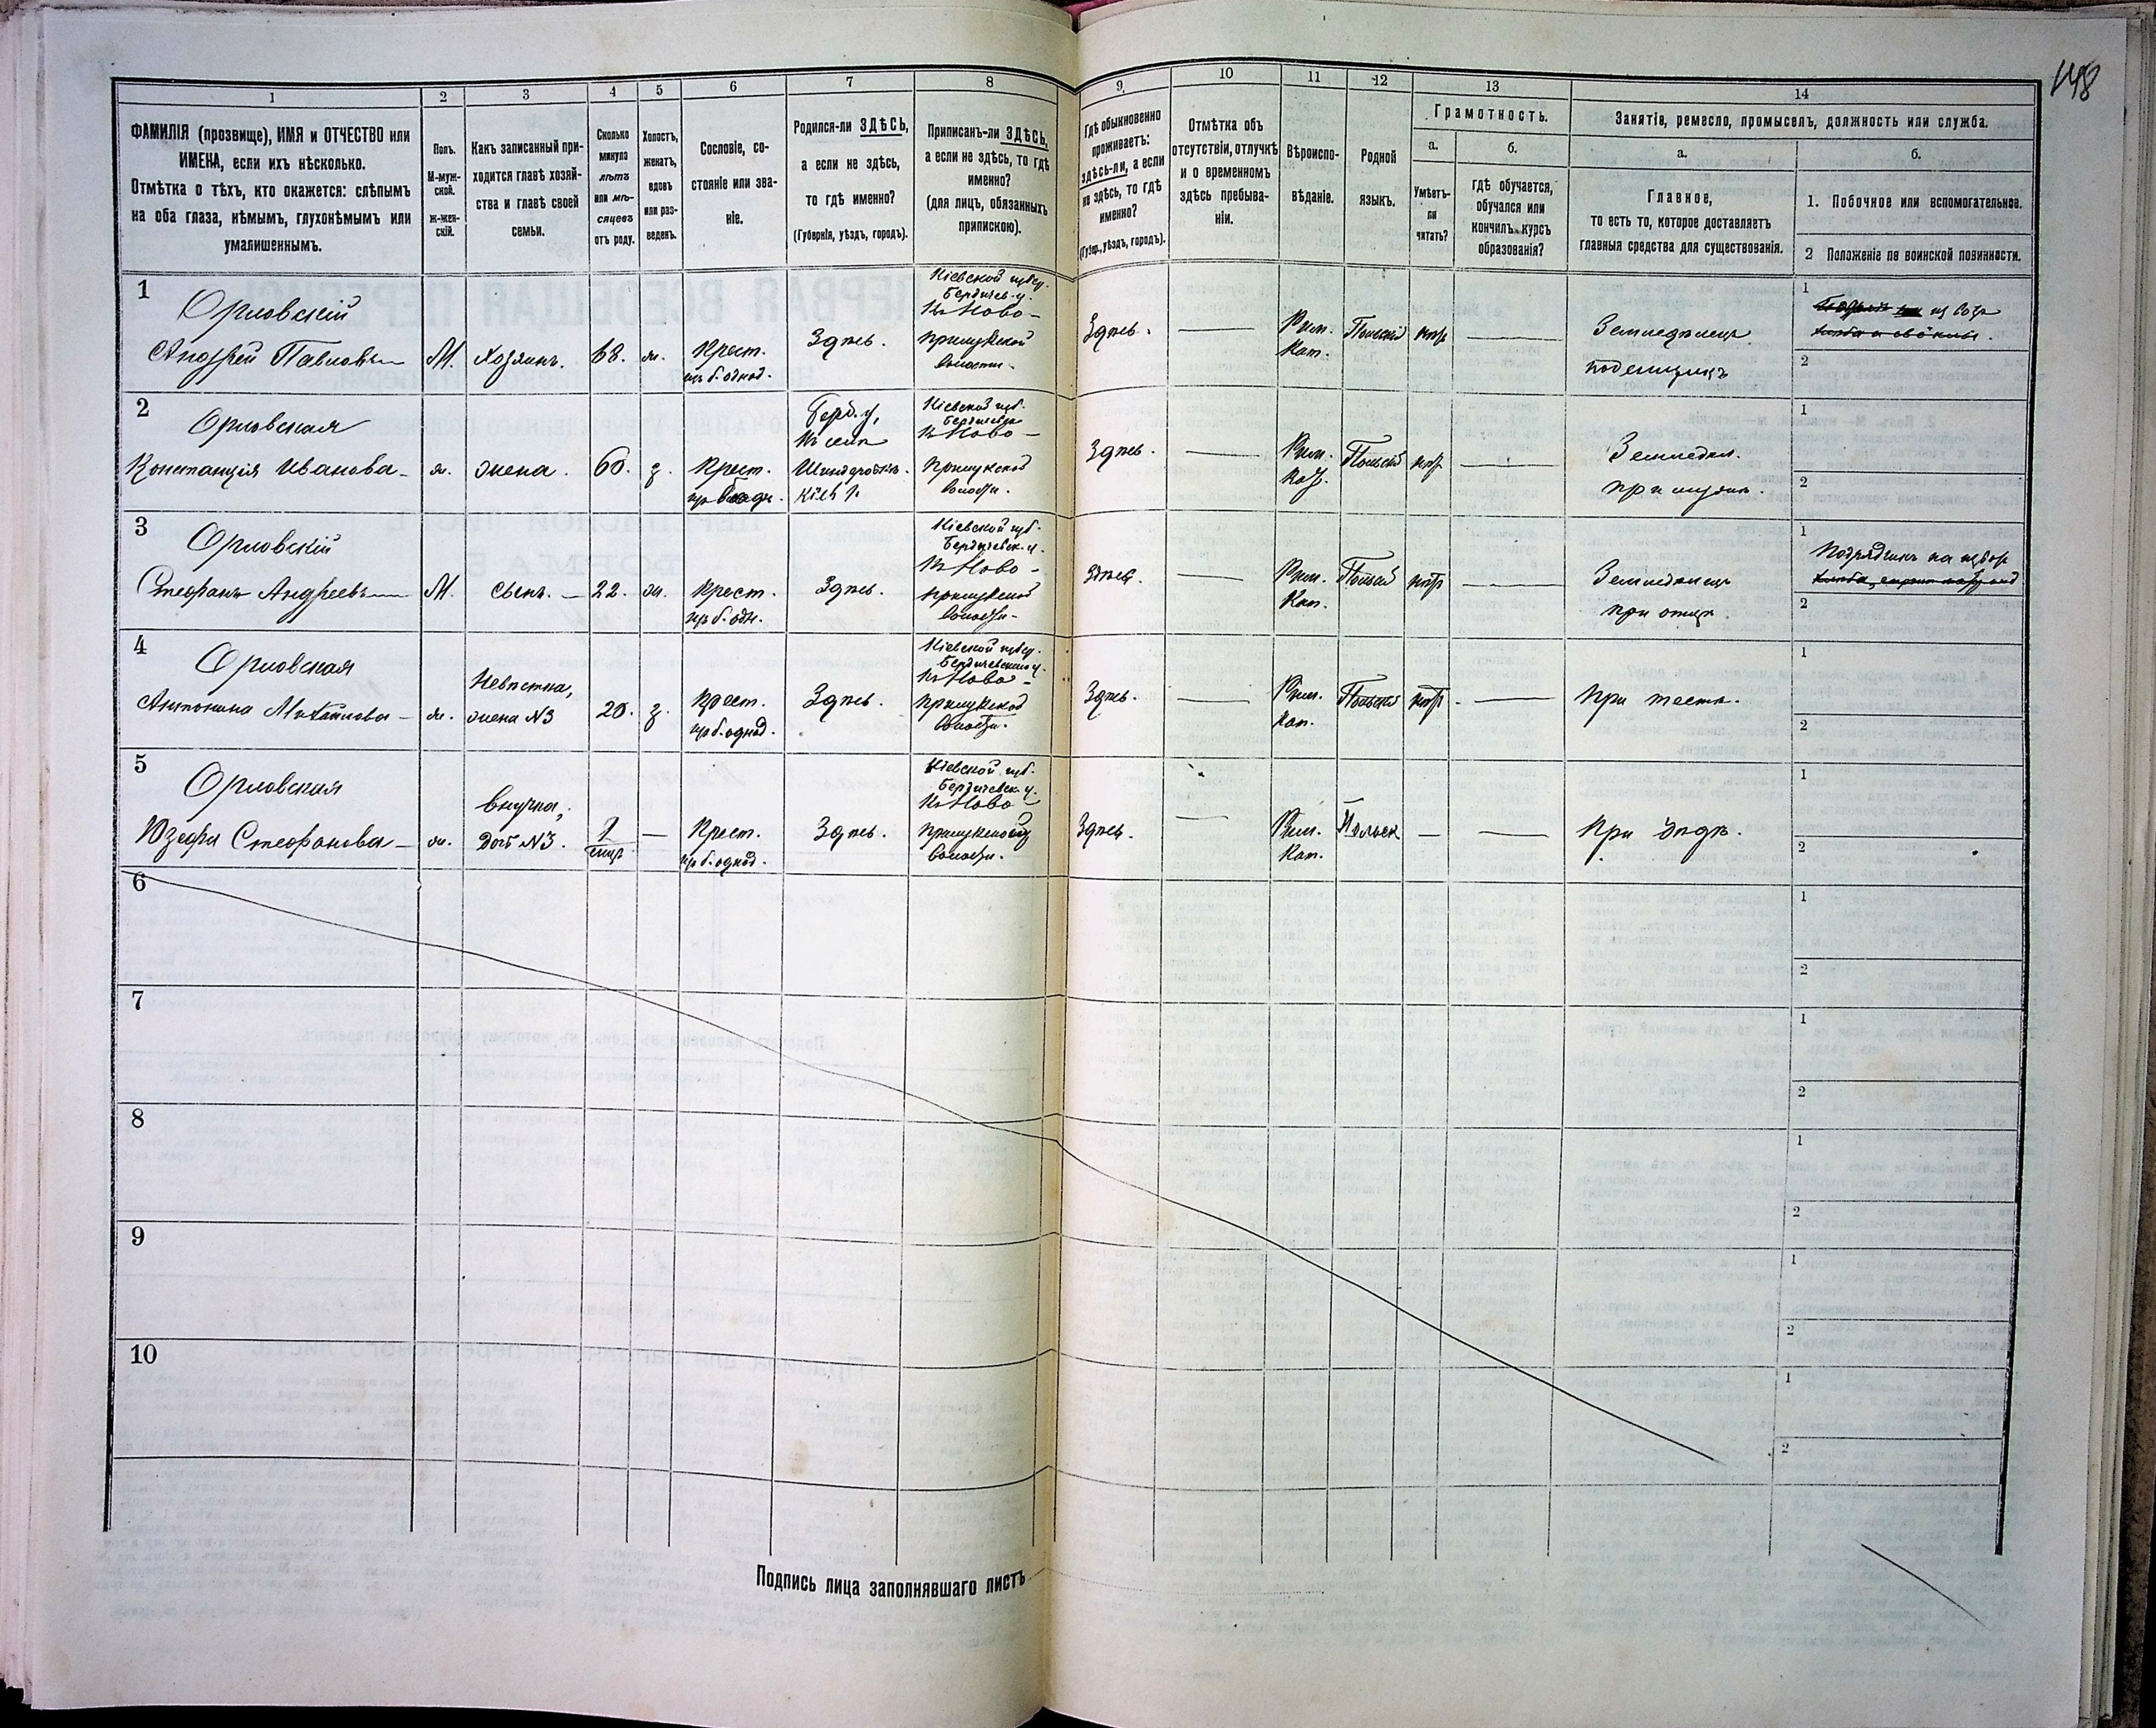 148
1 2 3 4 5 6 7 8 9 10 11 12 13 14
ФАМИЛІЯ (прозвище), ИМЯ и ОТЧЕСТВО или
ИМЕНА, если ихъ нѣсколько.
Отмѣтка о тѣхъ, кто окажется: слѣпымъ
на оба глаза, нѣмымъ, глухонѣмымъ или
умалишеннымъ.
Полъ.
М-муж-
ской.
Ж-жен-
скій.
Какъ записанный при-
ходится главѣ хозяй-
ства и главѣ своей
семьи.
Сколько
минуло
лѣтъ
или мѣ-
сяцевъ
отъ роду.
Холостъ,
женатъ,
вдовъ
или раз-
веденъ.
Сословіе, со-
стояніе или зва-
ніе.
Родился-ли ЗДѢСЬ,
а если не здѣсь,
то гдѣ именно?
(Губернія, уѣздъ, городъ).
Приписанъ-ли ЗДѢСЬ,
а если не здѣсь, то гдѣ
именно?
(для лицъ, обязанныхъ
припискою).
Гдѣ обыкновенно
проживаетъ:
здѣсь-ли, а если
не здѣсь, то гдѣ
именно?
(Губер., уѣздъ, городъ).
Отмѣтка объ
отсутствіи, отлучкѣ
и о временномъ
здѣсь пребыва-
ніи.
Вѣроиспо-
вѣданіе.
Родной
языкъ.
Грамотность.
а.
Умѣетъ-
ли
читать?
б.
гдѣ обучается,
обучался или
кончилъ курсъ
образованія?
Занятіе, ремесло, промыселъ, должность или служба.
а.
Главное,
то есть то, которое доставляетъ
главныя средства для существованія.
б.
1. Побочное или вспомогательное.
2 Положеніе по воинской повинности.
1
Орловскій
Андрей Павловъ
М.
Хозяинъ.
68.
ж.
Крест.
изъ б. однод.
Здѣсь.
Кіевской губер.
Бердичев. у.
Ново-
прилукской
волости.
Здѣсь.
Рим.
Кат.
Польскій
нѣт
Земледѣлецъ
1
2
2
Орловская
Констанція Иванова
ж.
жена.
60.
з.
Крест.
Берд. у.
Кіевской губ.
Ново-
прилукской
волости.
Здѣсь.
Рим.
Кат.
Польскій
нѣт
Земледѣл.
при мужѣ.
1
2
3
Орловскій
Стефанъ Андреевъ
М.
Сынъ.
22.
ж.
Крест.
из б. одн.
Здѣсь.
Кіевской губ.
Бердичевск. у.
Ново-
прилукской
волости.
Здѣсь.
Рим.
Кат.
Польскій
нѣт
Земледѣлецъ
при отцѣ.
1
2
4
Орловская
Антонина Михайлова
ж.
Невѣстка,
жена №3
20.
з.
Крест.
из б. однод.
Здѣсь.
Кіевской губер.
Бердичевскаго у.
Ново-
прилукской
волости.
Здѣсь.
Рим.
Кат.
Польскій
нѣт.
При тестѣ.
1
2
5
Орловская
Юзефа Стефанова
ж.
внучка,
доч №3.
Крест.
из б. однод.
Здѣсь.
Кіевской губ.
Бердичевск. у.
Ново
прилукской
волости.
Здѣсь.
Рим.
Кат.
Польск
При дѣдѣ.
1
2
6
1
2
7
1
2
8
1
2
9
1
2
10
1
2
Подпись лица заполнявшаго листъ